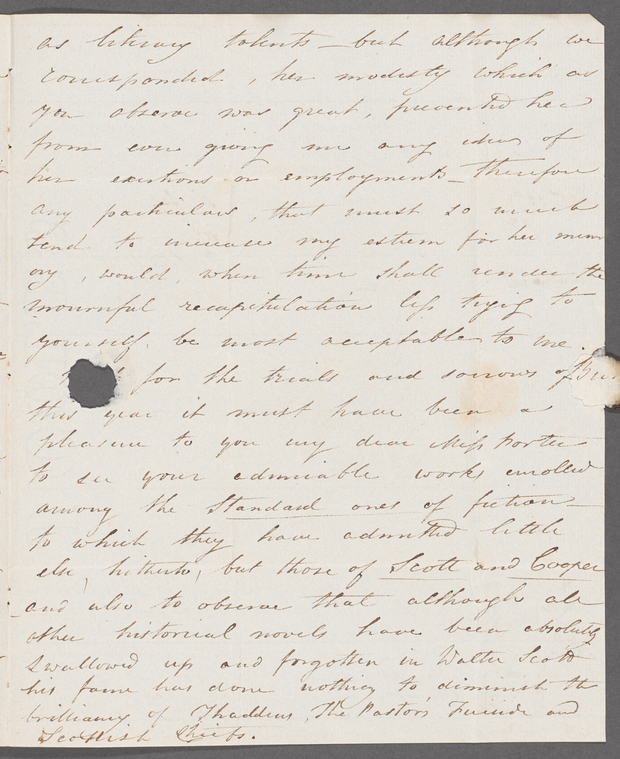 as literary talents – but although we
corresponded, her modesty which as
you observe was great, prevented her
from ever giving me any idea of
her exertions or employments – Therefore
any particulars, that must so much
tend to increase my esteem for her mem
ory, would, when time shall render the
mournful recapitulation less trying to
yourself, be most acceptable to me.
for the trials and sorrows of
this year it must have been a
pleasure to you my dear Miss Porter
to see your admirable works enrolled
among the Standard ones of fiction –
to which they have admitted little
else, hitherto, but those of Scott and Cooper
and also to observe that although all
other historical novels have been absolutely
swallowed up and forgotten in Walter Scott
his fame has done nothing to diminish the
brilliancy of Thaddeus, The Pastor's Fireside and
Scottish Chiefs.